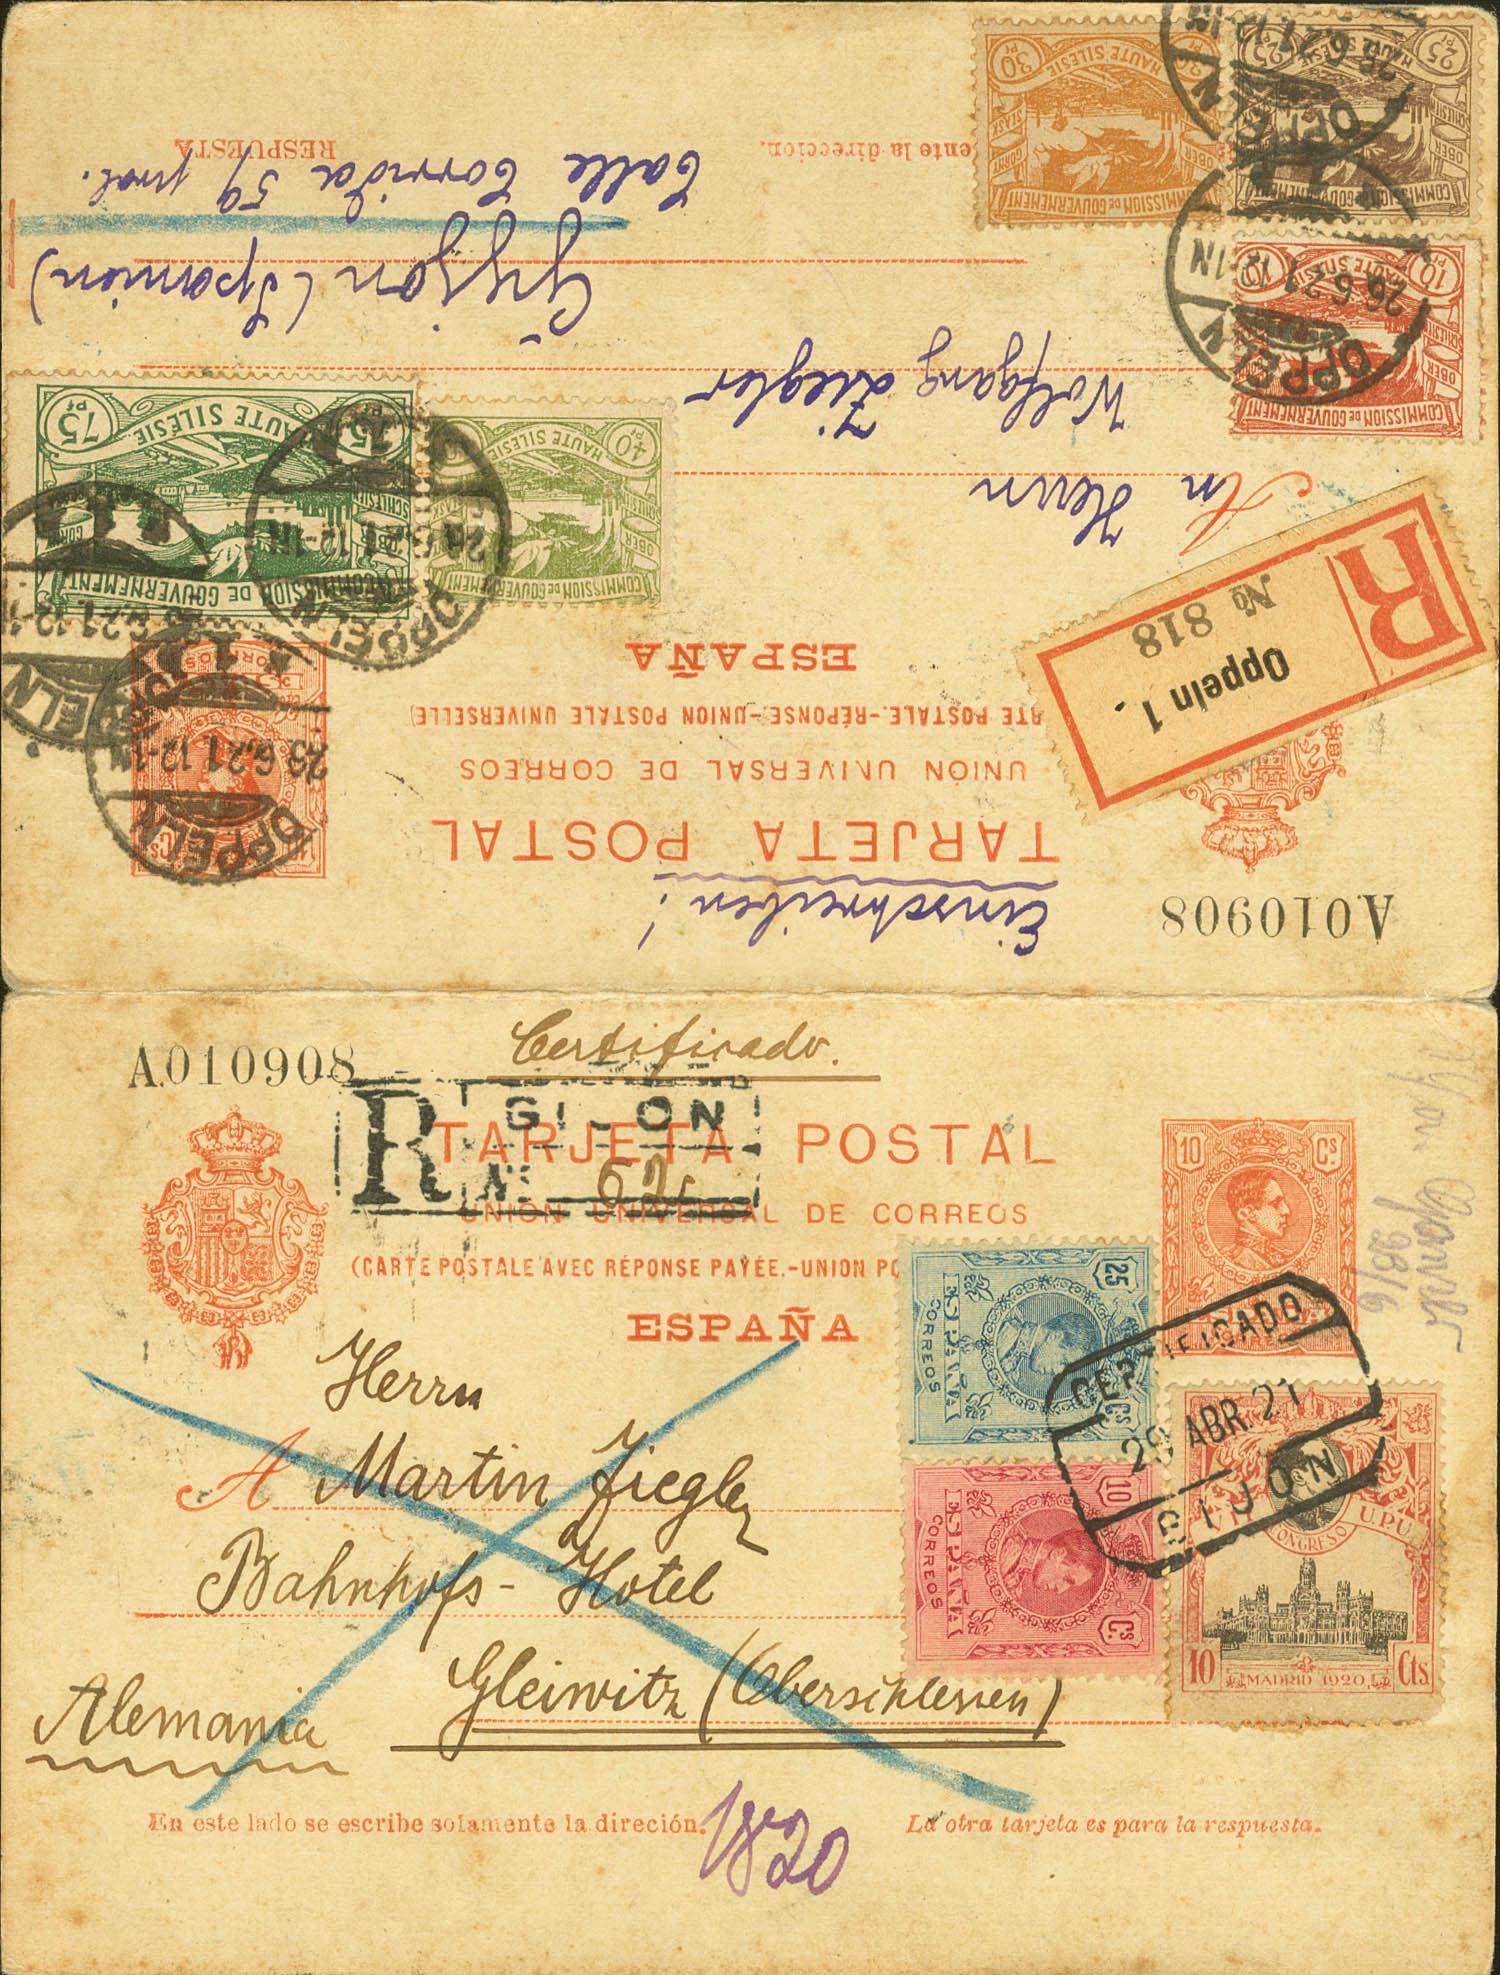 RESPUESTA
ente la dirección.
Calle Corrida 59 pral.
Gijon (Spanien)
Wolfgang Ziegler
An Herrn
30 Pf
HAUTE SILESIE
COMMISSION DE GOUVERNEMENT
25 Pf
HAUTE SILESIE
OBER SCHLESIEN
COMMISSION DE GOUVERNEMENT
OPPELN
26.6.21 12-1N
10 Pf
HAUTE SILESIE
COMMISSION DE GOUVERNEMENT
OPPELN
26.6.21 12-1N
75 Pf 75 Pf
HAUTE SILESIE
COMMISSION DE GOUVERNEMENT
40 Pf
HAUTE SILESIE
COMMISSION DE GOUVERNEMENT
OPPELN
26.6.21 12-1N
R
Oppeln 1.
№ 818
ESPAÑA
RTE POSTALE.-RÉPONSE.-UNION POSTALE UNIVERSELLE)
UNION UNIVERSAL DE CORREOS
TARJETA POSTAL
Einschreiben!
A.010908
OPPELN
26.6.21 12-1N
A.010908
Certificado.
R GIJON
Nº 62
TARJETA POSTAL
UNION UNIVERSAL DE CORREOS
(CARTE POSTALE AVEC RÉPONSE PAYÉE.-UNION PO
ESPAÑA
10 Cs
25 Cs
ESPAÑA
CORREOS
10 Cs
ESPAÑA
CORREOS
CERTIFICADO
29 ABR. 21
GIJON
VII CONGRESO U.P.U.
10 Cts
MADRID 1920
Herrn
A Martin Ziegler
Bahnhofs-Hotel
Gleiwitz (Oberschlesien)
Alemania
En este lado se escribe solamente la direción.
La otra tarjeta es para la respuesta.